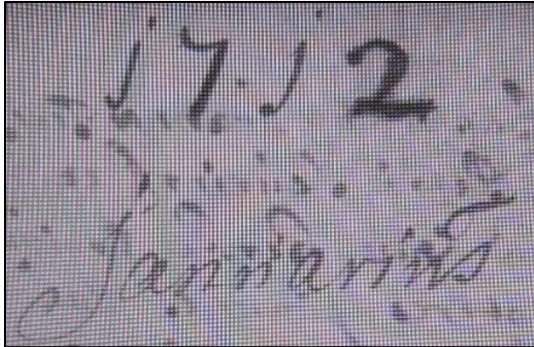 1712
Januarius